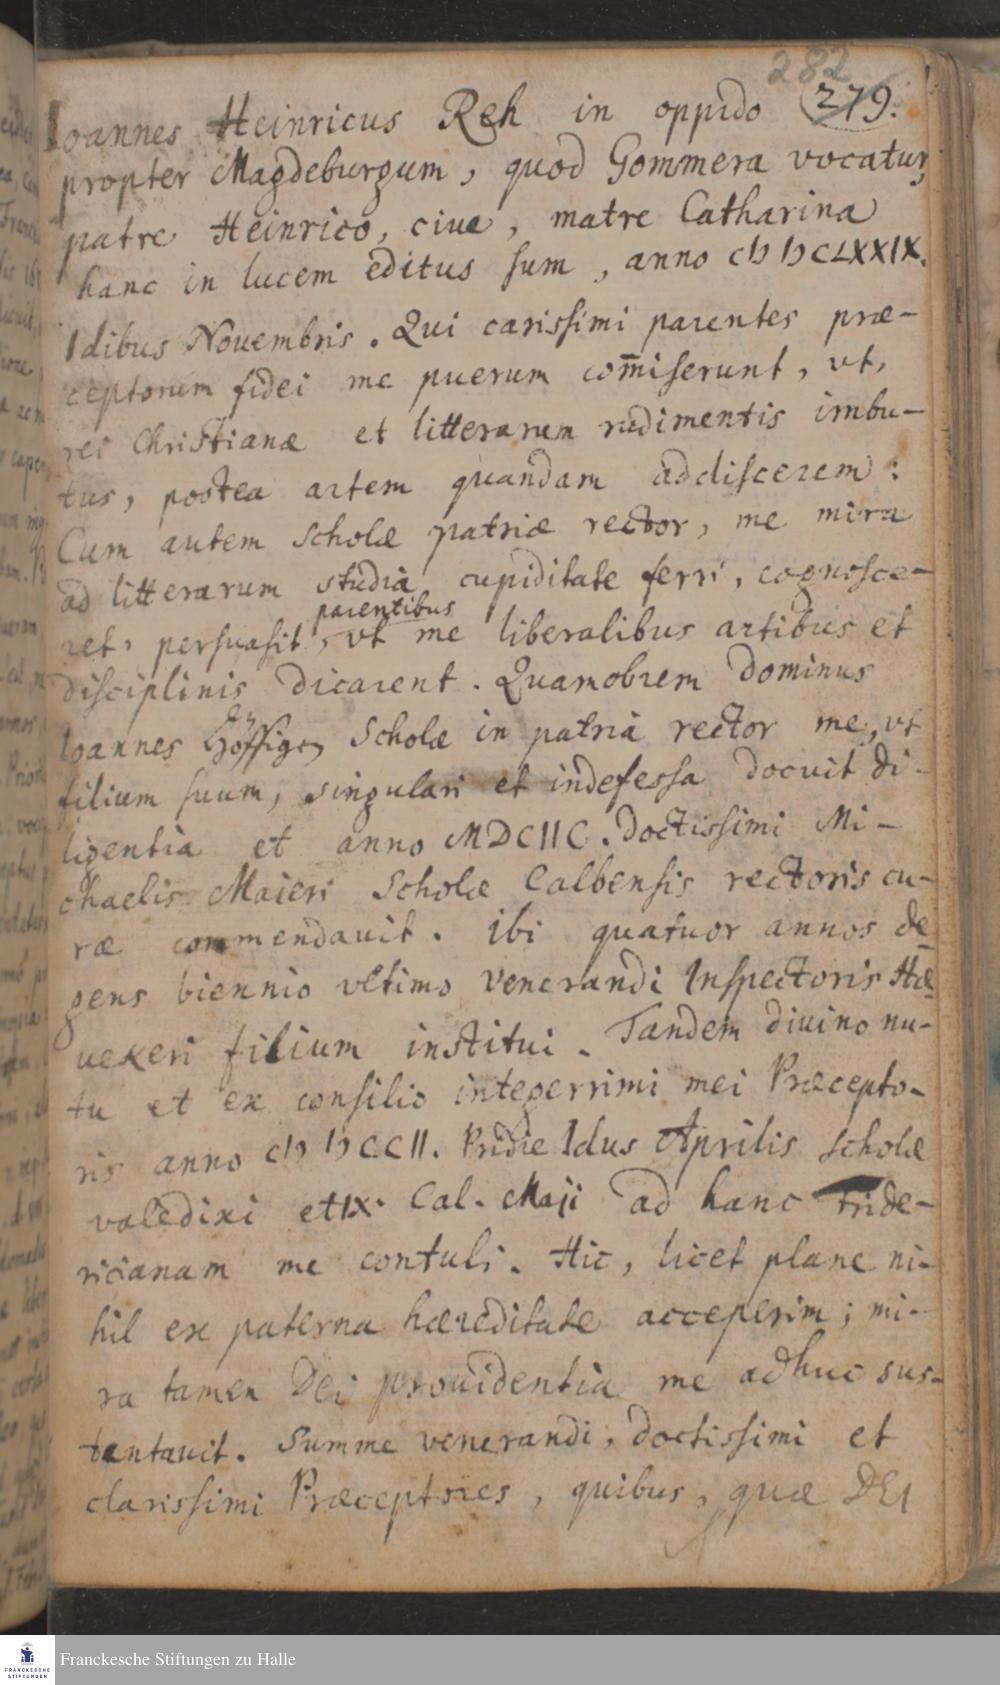 282
279.
Ioannes Heinricus Reh in oppido
propter Magdeburgum, quod Gommera vocatur,
patre Heinrico, ciue, matre Catharina
hanc in lucem editus sum, anno cIɔ Iɔ CLXXIX.
Idibus Nouembris. Qui carissimi parentes præ-
ceptorum fidei me puerum com̄iserunt, vt,
rei Christianæ et litterarum rudimentis imbu-
tus, postea artem quandam addiscerem:
Cum autem Scholæ patriæ rector, me mira
ad litterarum studia cupiditate ferri, cognosce-
parentibus
ret, persuasit, vt me liberalibus artibus et
disciplinis dicarent. Quamobrem Dominus
Ioannes Scholæ in patria rector me, vt
filium suum, singulari et indefessa docuit di-
ligentia et anno MDCIIC. Doctissimi Mi-
chaelis Maieri Scholæ Calbensis rectoris cu-
ræ commendauit. Ibi quatuor annos de-
gens biennio vltimo Venerandi Inspectoris Hæ-
uekeri filium institui. Tandem diuino nu-
tu et ex consilio integerrimi mei Præcepto-
ris anno cIɔ Iɔ CCII. Pridie Idus Aprilis scholæ
valedixi et IX. Cal. Maji ad hanc Fride-
ricianam me contuli. Hic, licet plane ni-
hil ex paterna hæreditate acceperim; mi-
ra tamen Dei prouidentia me adhuc sus-
tentauit. Summe venerandi, doctissimi et
clarissimi Præceptores, quibus, quæ DEI
Franckesche Stiftungen zu Halle
FRANCKESCHE
STIFTUNGEN